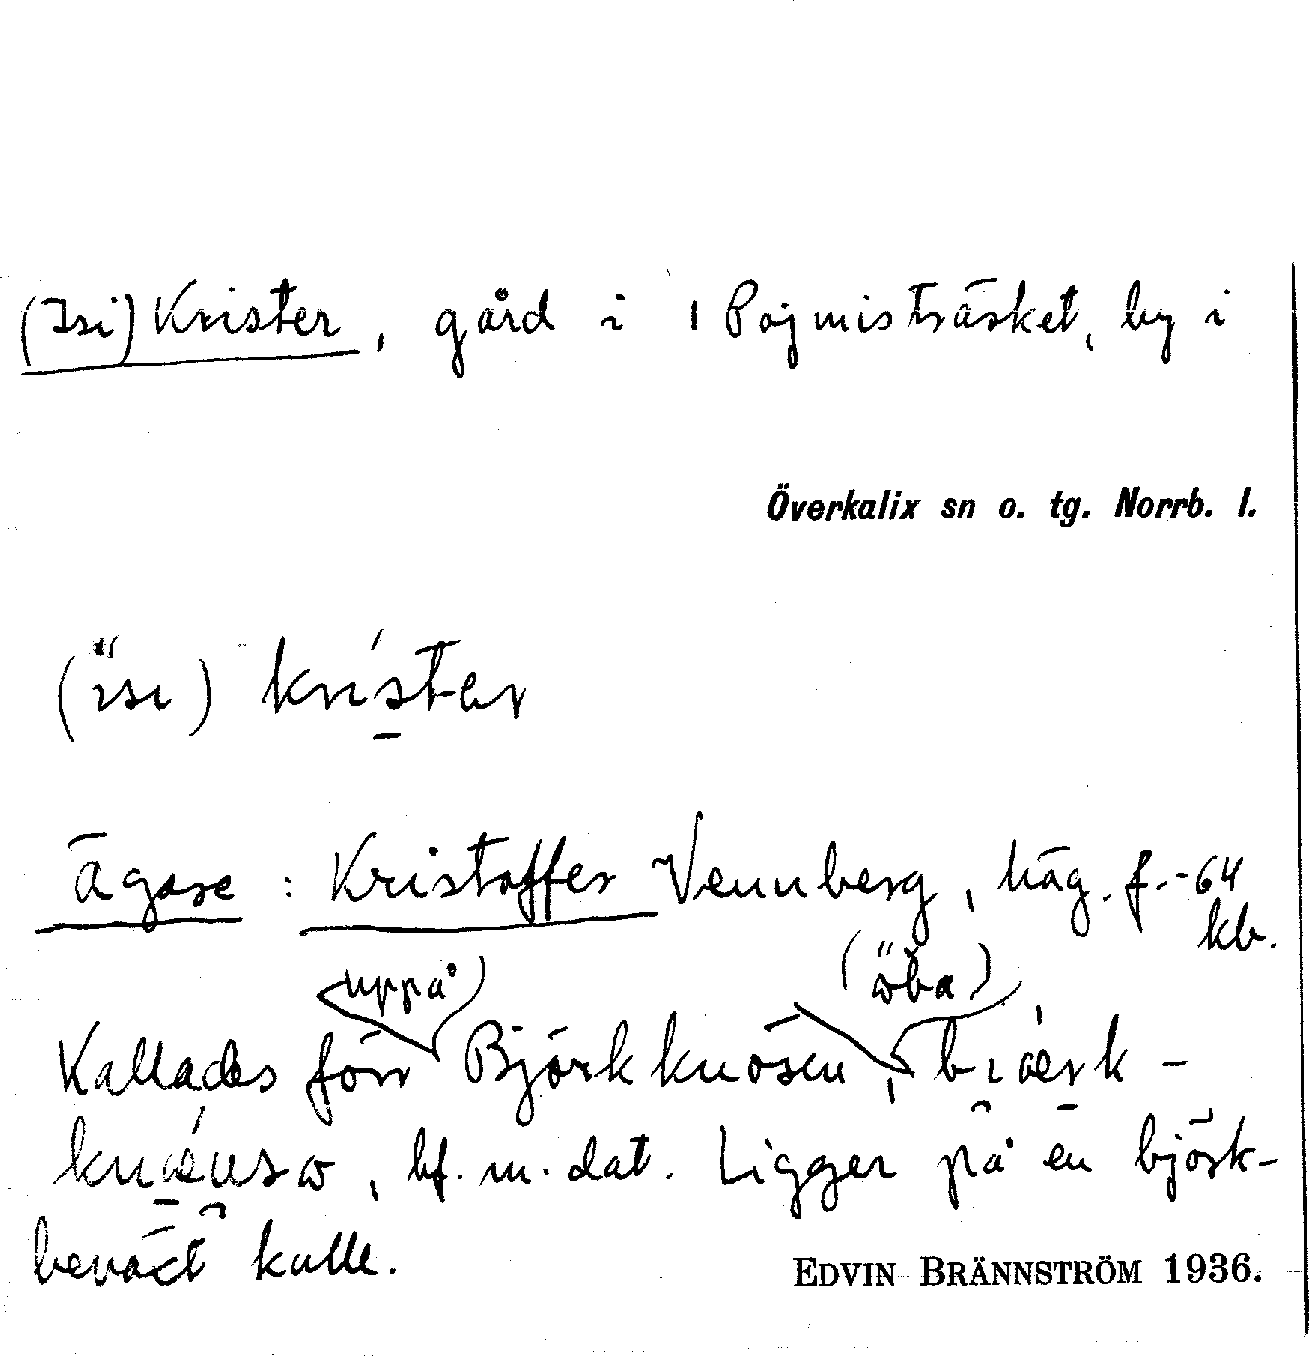 (Isi) Krister, gård i 1 Pojmisträsket, by i
Överkalix sn o. tg. Norrb. l.
(isi) krister
Ägare: Kristoffer Vennberg, häg. f. -64
kb.
(uppå) (öba)
Kallades förr Björkknösen, biœrk-
bf. m. dat. Ligger på en björk-
beväxt kulle.
EDVIN BRÄNNSTRÖM 1936.